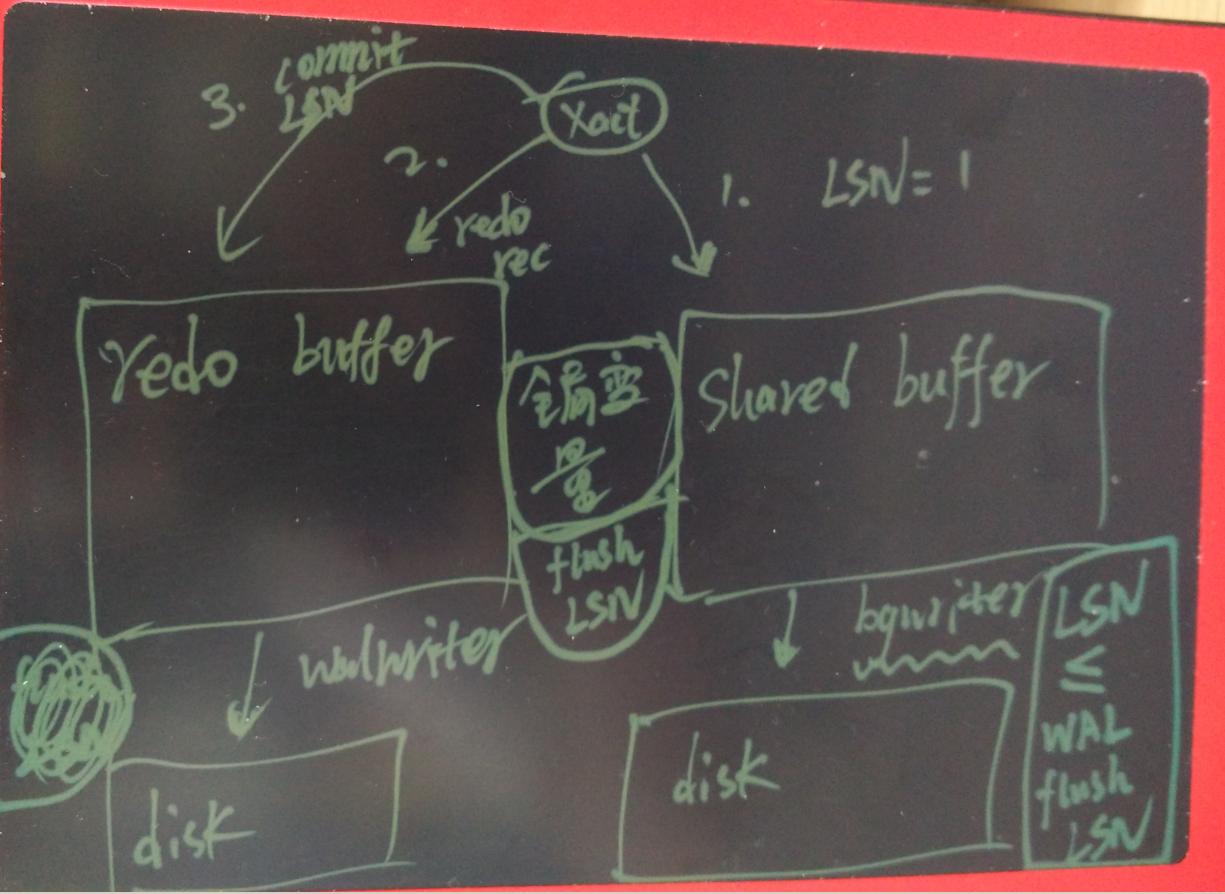 3. commit
LSN
Xact
2.
redo
rec
1. LSN = 1
redo buffer
全局变
量
flush
LSN
Shared buffer
walwriter
bgwriter
LSN
≤
WAL
flush
LSN
disk
disk